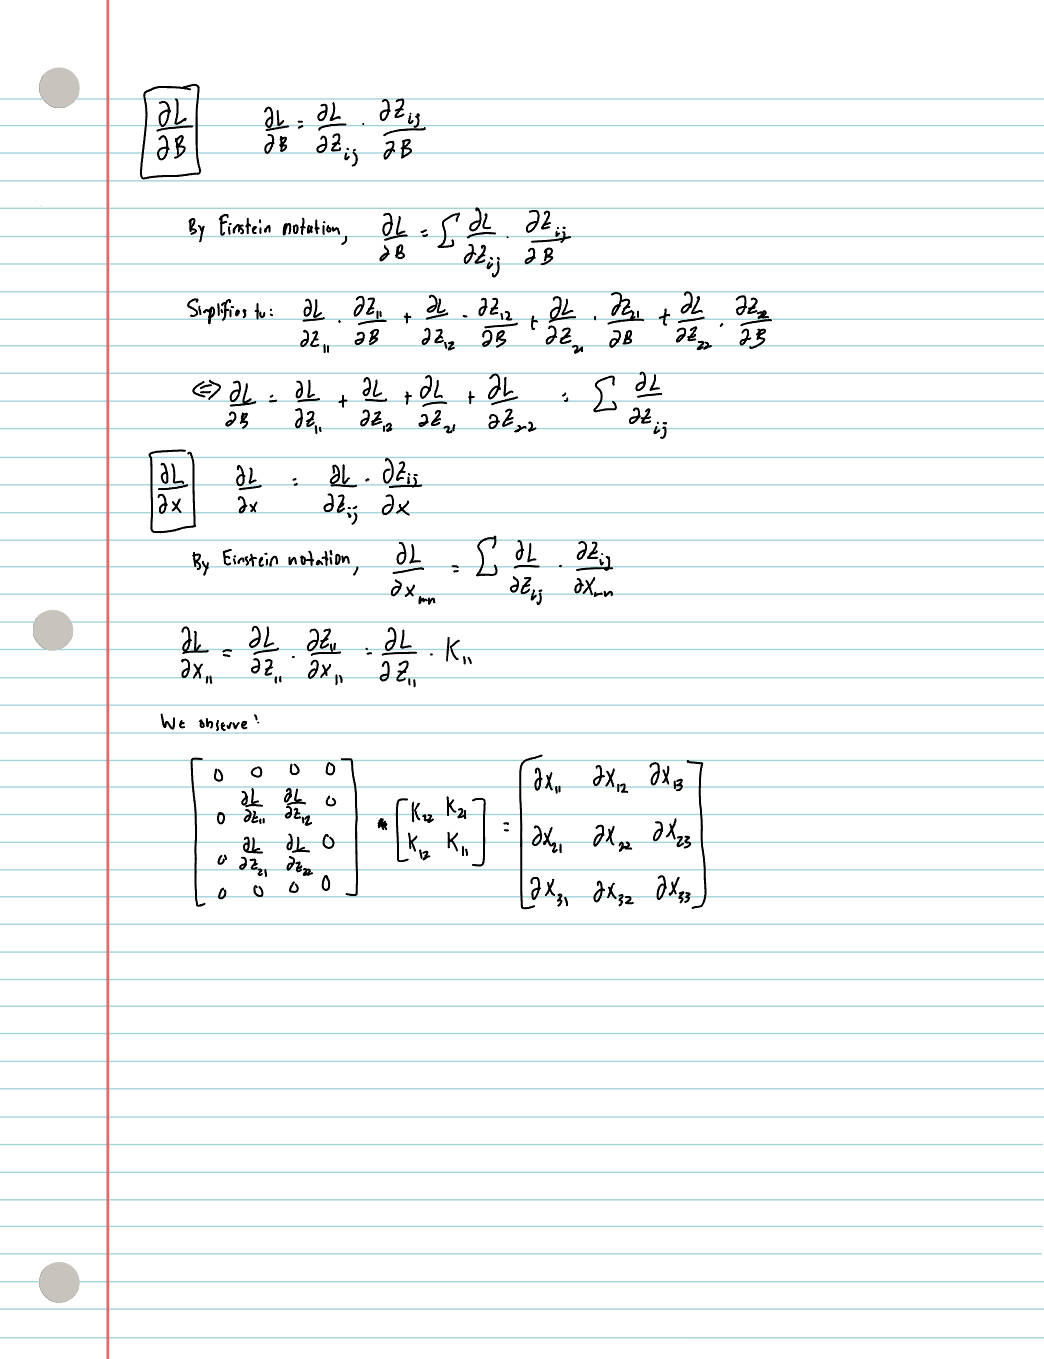 ∂L/∂B ∂L/∂B = ∂L/∂Z_ij · ∂Z_ij/∂B
By Einstein notation, ∂L/∂B = Σ ∂L/∂Z_ij · ∂Z_ij/∂B
Simplifies to: ∂L/∂Z_11 · ∂Z_11/∂B + ∂L/∂Z_12 · ∂Z_12/∂B + ∂L/∂Z_21 · ∂Z_21/∂B + ∂L/∂Z_22 · ∂Z_22/∂B
⇔ ∂L/∂B = ∂L/∂Z_11 + ∂L/∂Z_12 + ∂L/∂Z_21 + ∂L/∂Z_22 = Σ ∂L/∂Z_ij
∂L/∂X ∂L/∂X = ∂L/∂Z_ij · ∂Z_ij/∂X
By Einstein notation, ∂L/∂X_mn = Σ ∂L/∂Z_ij · ∂Z_ij/∂X_mn
∂L/∂X_11 = ∂L/∂Z_11 · ∂Z_11/∂X_11 = ∂L/∂Z_11 · K_11
We observe:
[0 0 0 0; 0 ∂L/∂Z_11 ∂L/∂Z_12 0; 0 ∂L/∂Z_21 ∂L/∂Z_22 0; 0 0 0 0] * [K_22 K_21; K_12 K_11] = [∂X_11 ∂X_12 ∂X_13; ∂X_21 ∂X_22 ∂X_23; ∂X_31 ∂X_32 ∂X_33]